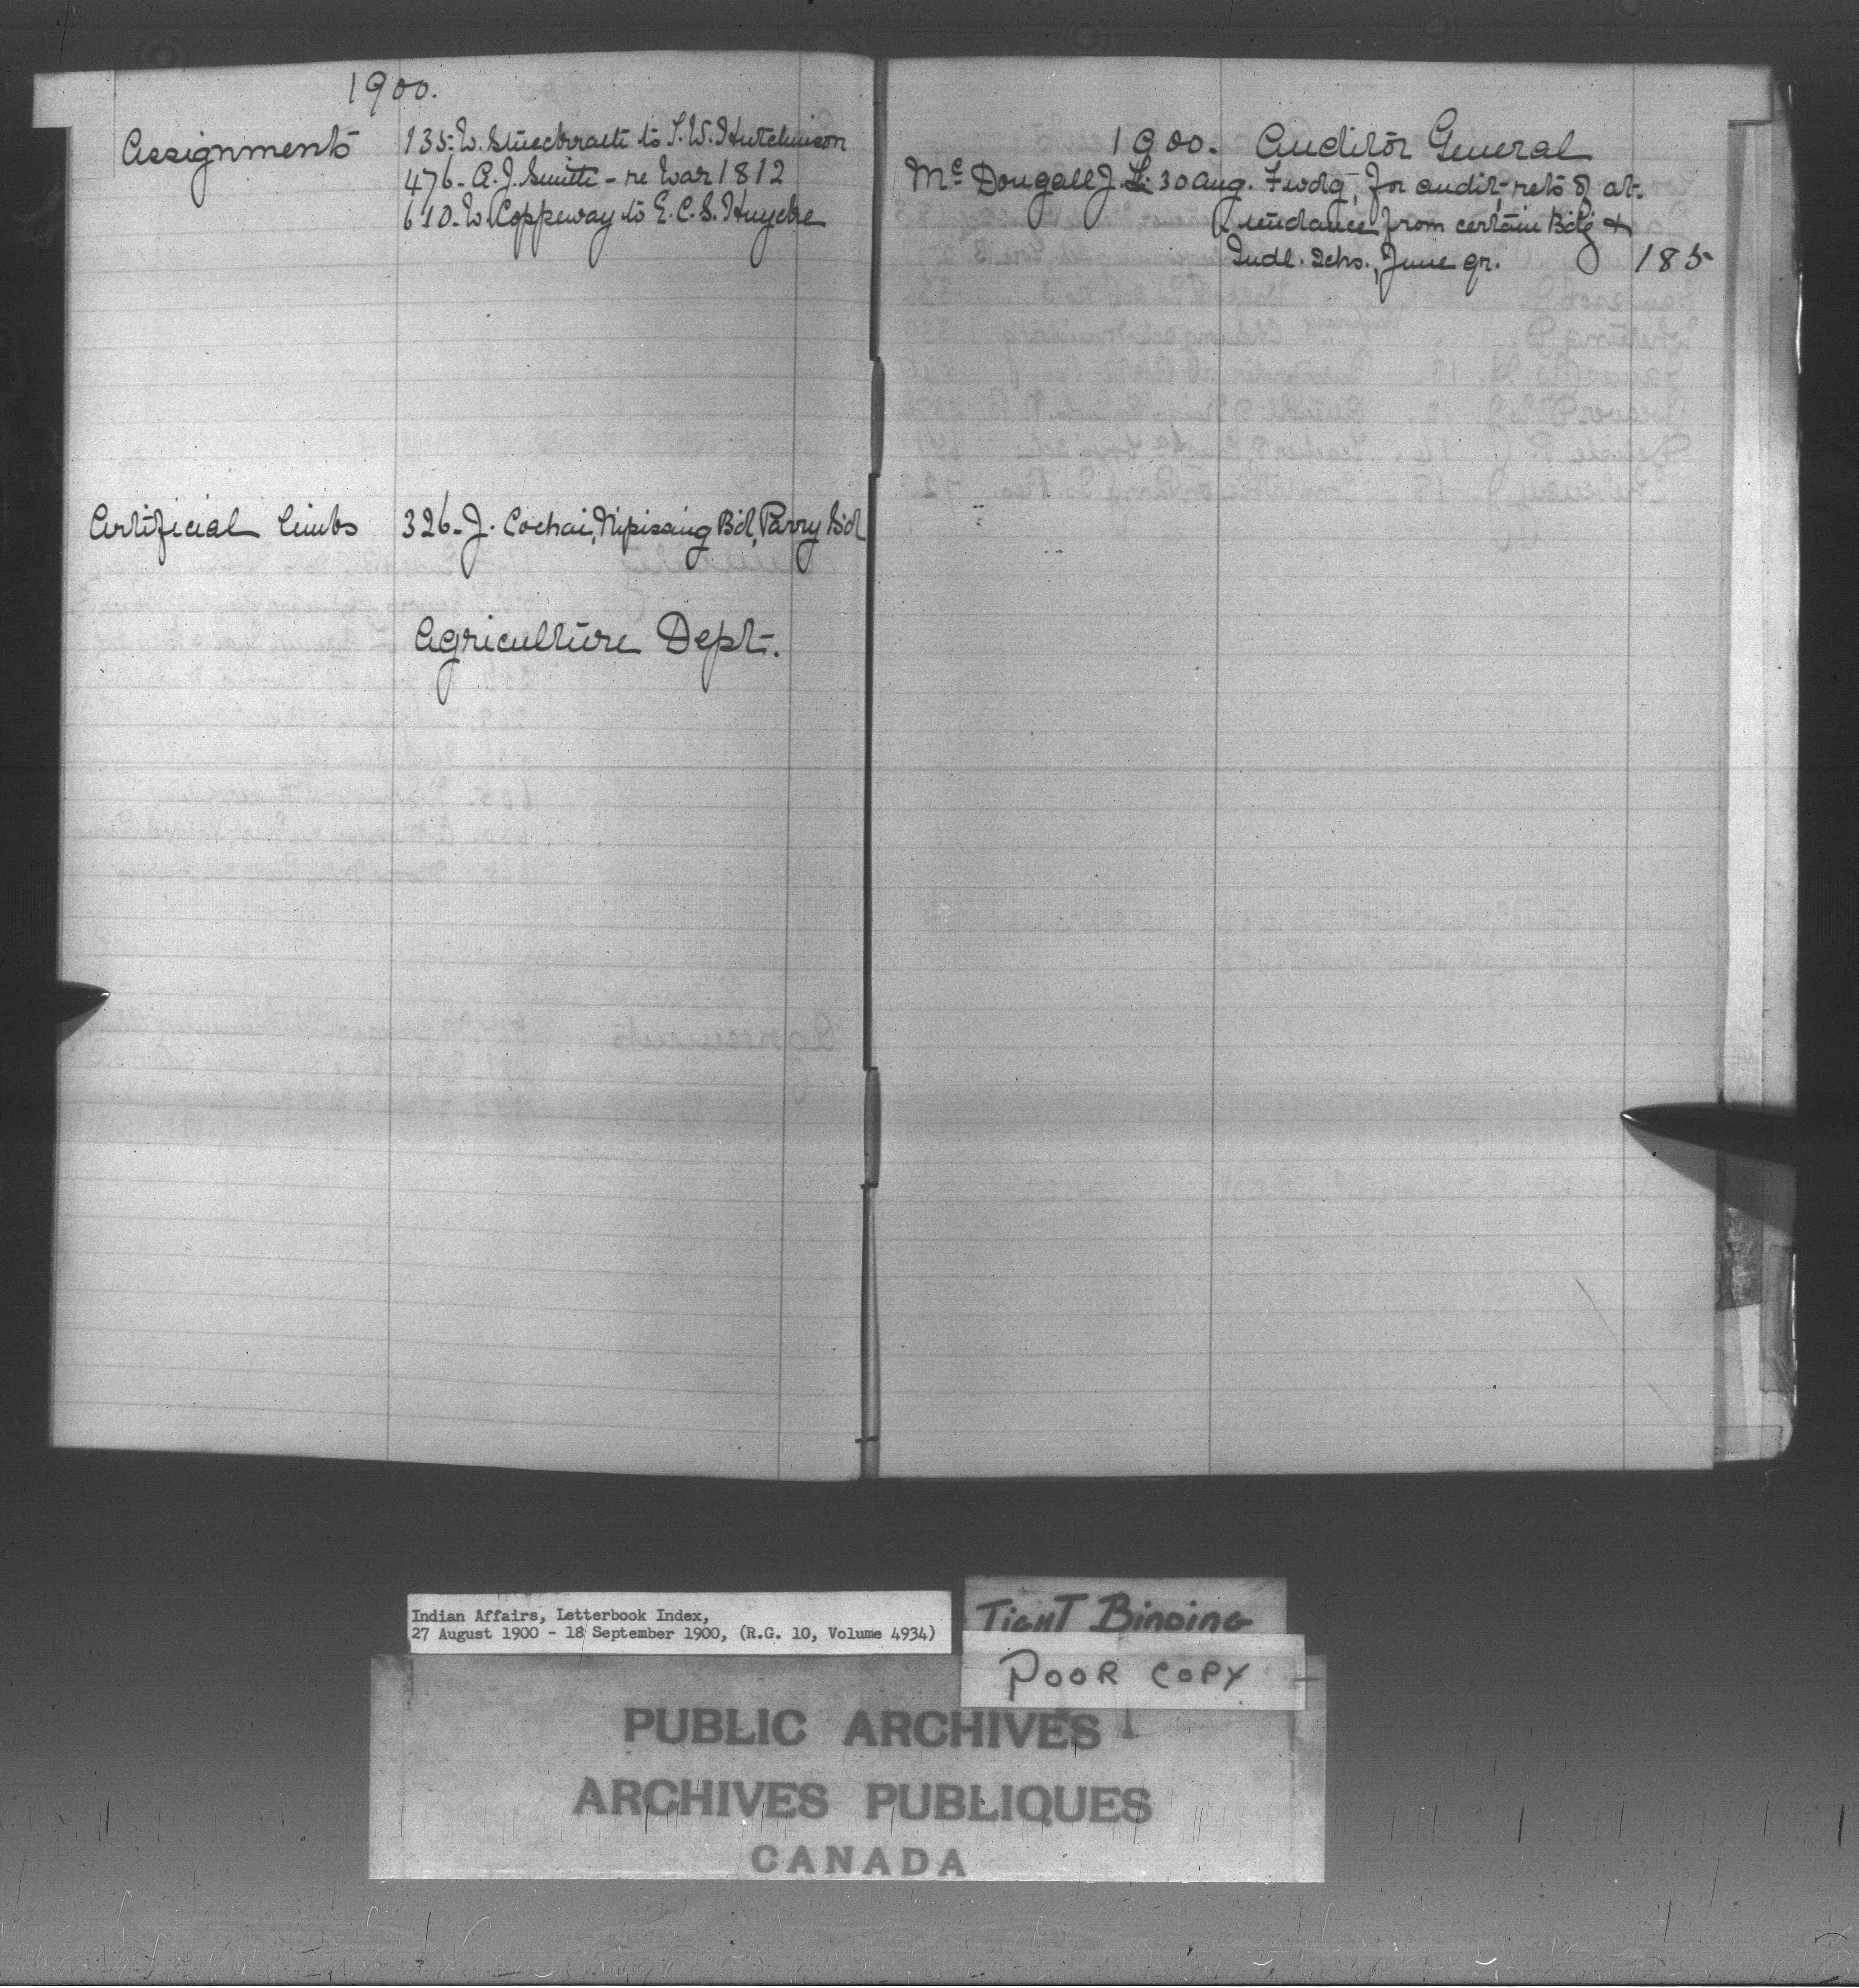 1900.
Assignments 135. W. to T. W. Hutchinson
476 - A. J. Smith - re War 1812
610. W. Coppeway to E. C. S. Huycke
Artificial limbs 326 - J. Cochai, Nipissing Bd, Parry Sd
Agriculture Dept.
1900. Auditor General
McDougall J. L. 30 Aug. Fwdg, for audit, rets of at-
tendance from certain Bdg &
Indl. Schs., June qr. 185
Indian Affairs, Letterbook Index,
27 August 1900 - 18 September 1900, (R.G. 10, Volume 4934)
TIGHT BINDING
POOR COPY
PUBLIC ARCHIVES
ARCHIVES PUBLIQUES
CANADA